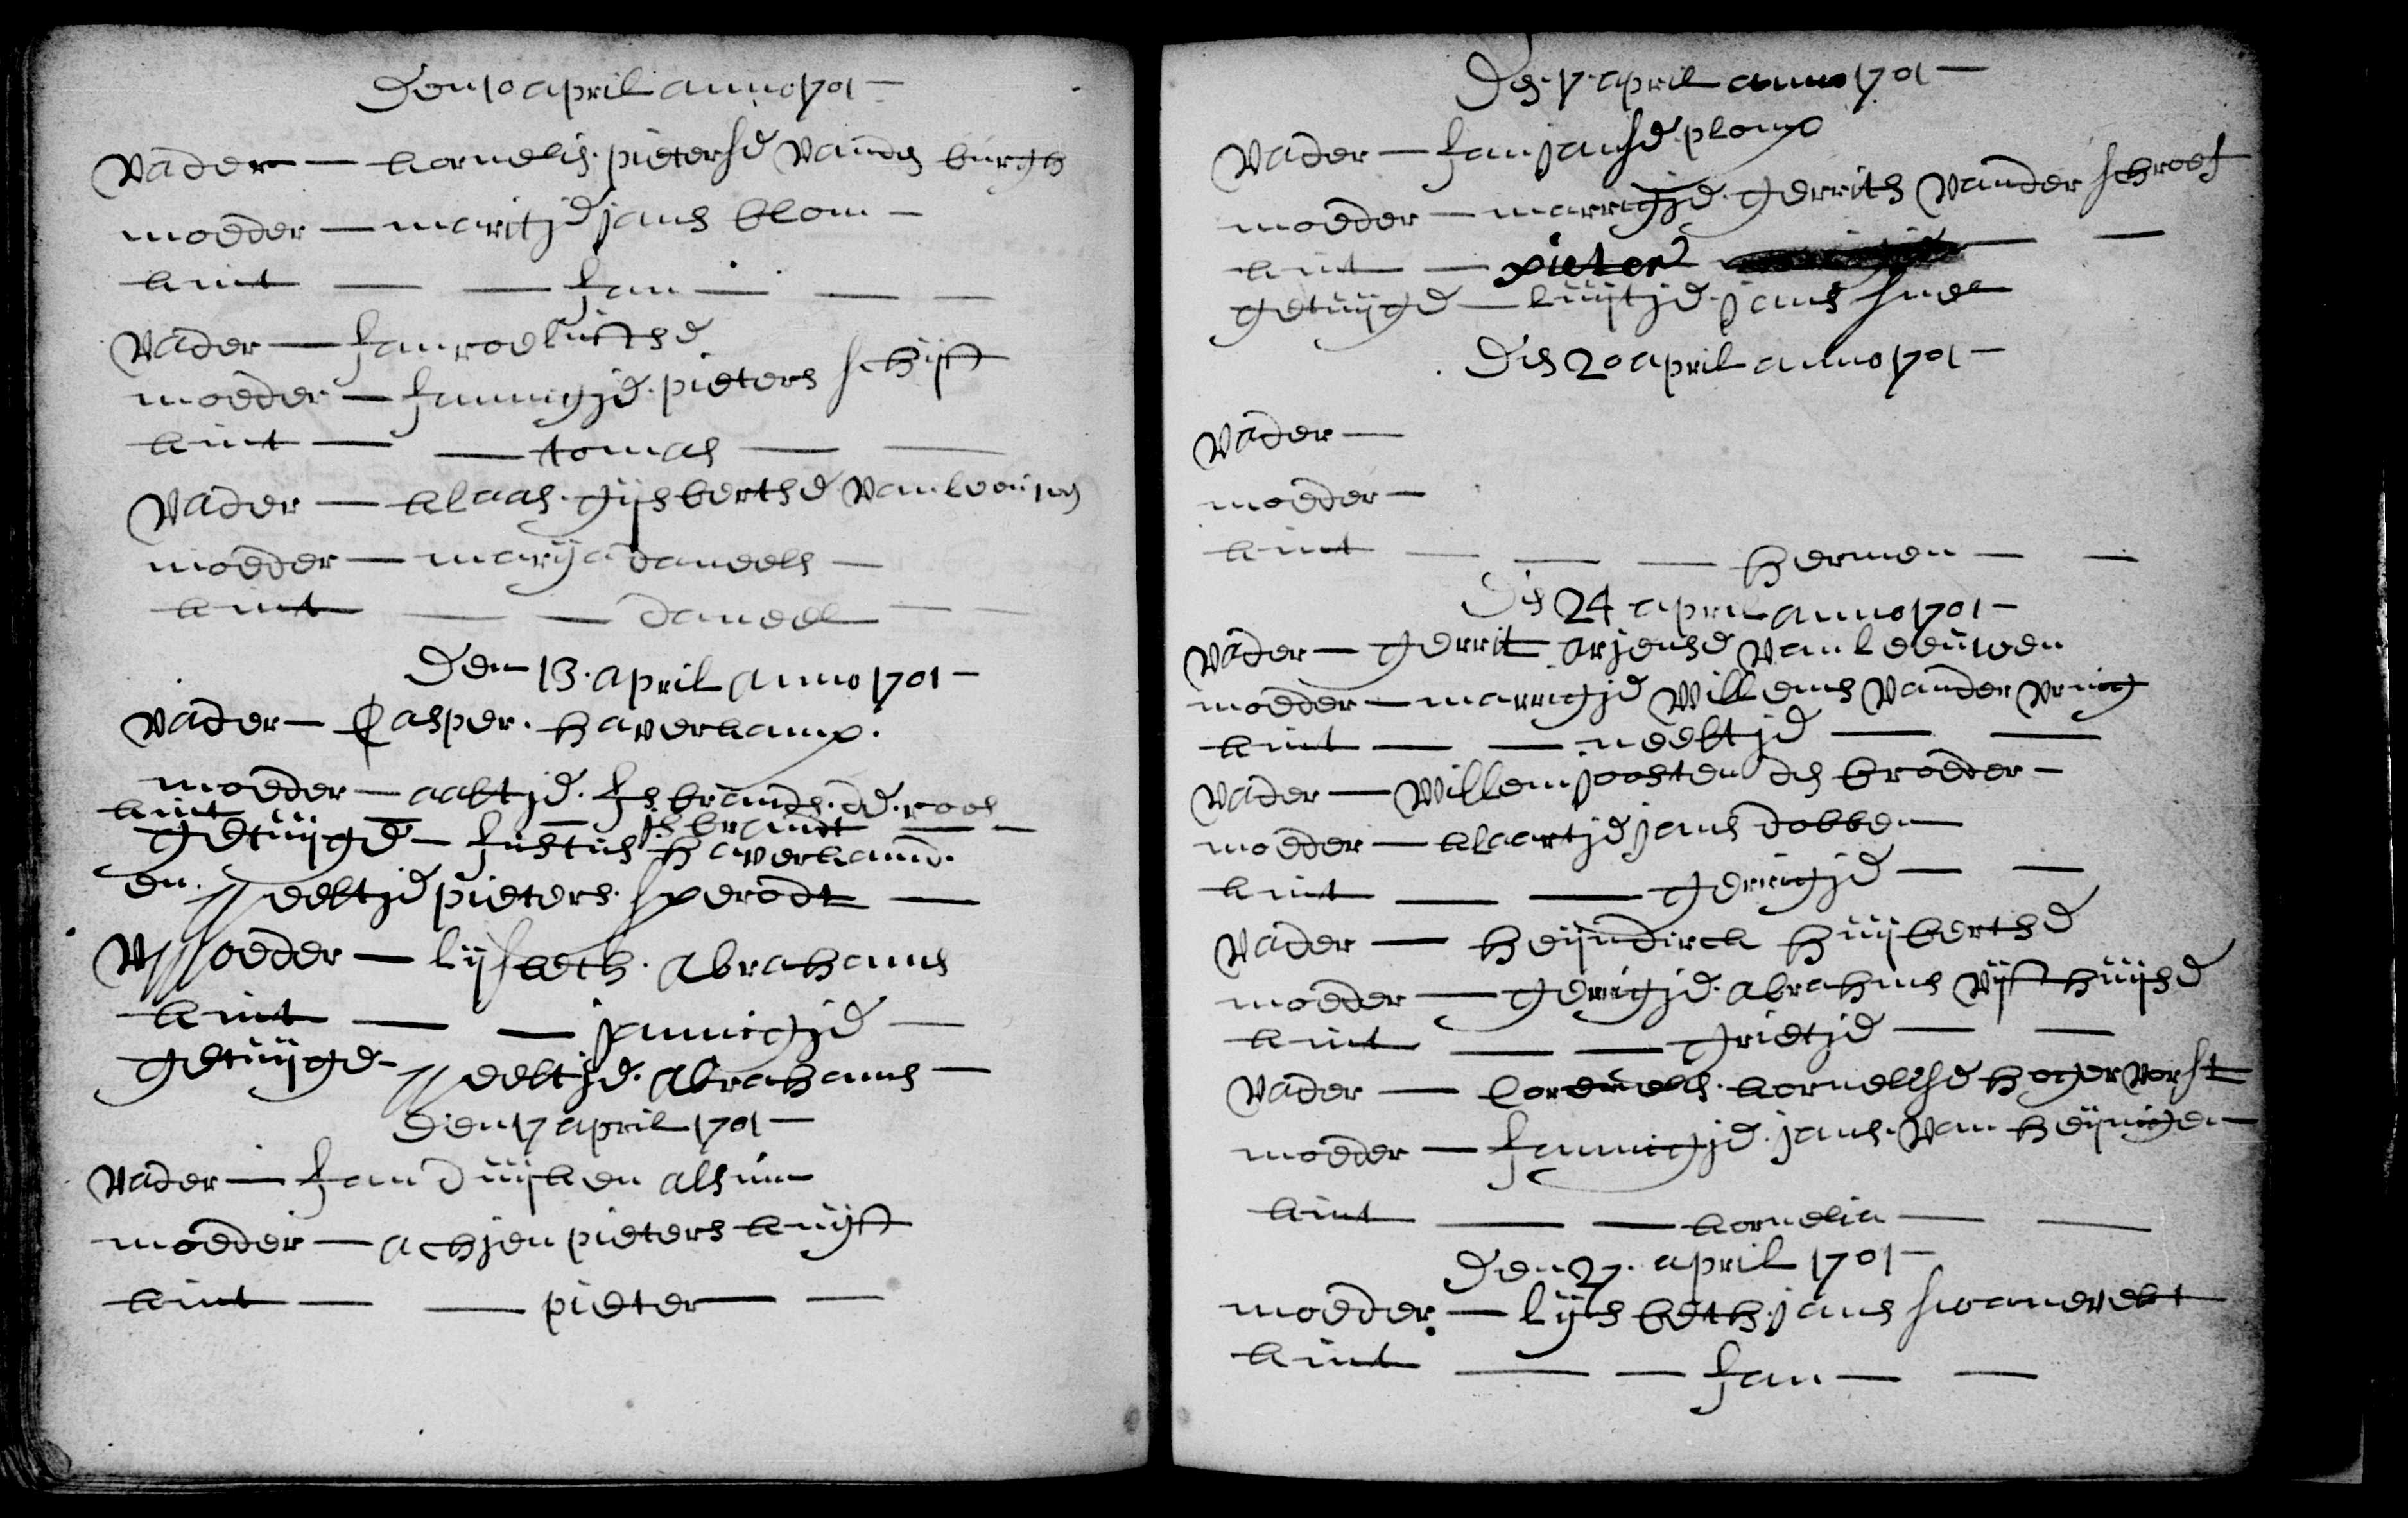 Den 10 april anno 1701 –
Vader — kornelis pieterse vande burgh
moeder — maritje jans blom –
kint — — Jan — — —
Vader — Jan roelufse
moeder — Jannigje pieters schijft
kint — — tomas — —
Vader — klaas gijsbertse van
moeder — marija daneels —
kint — — daneel — —
Den 13 april anno 1701 –
Vader — Casper haverkamp
moeder — aaltje Isbrands de roos
kint — — isbrandt — —
getuijge — Justus haverkamp
en Neeltje pieters sperodt —
Moeder — lijsbeth abrahams
kint — — jannigje —
getuijge – Neeltje abrahams —
Den 17 april 1701 —
Vader — Jan duijken
moeder — achjen pieters knijft
kint — — pieter — —
Den 17 april anno 1701 —
Vader — Jan janse plomp
moeder — marrigje gerrits vander schroef
kint — pieter — —
getuijge — luijtje jans snel
Den 20 april anno 1701 —
Vader —
moeder —
kint — — — hermen — —
Den 24 april anno 1701 –
Vader — gerrit arjense van leeuwen
moeder — marrigje willems vander
kint — — neeltje — —
Vader — Willem joosten den broeder –
moeder — klaartje jans dobben
kint — — gerrigje — —
Vader — heijndirck huijbertse
moeder — gerrigje abrahms vijfhuijse
kint — — grietje — —
Vader — cornelis kornelise hogervorst
moeder — Jannigje jans van heijnigen —
kint — — kornelia — —
Den 27 april 1701 —
moeder — lijsbeth jans swanevelt
kint — — Jan — —